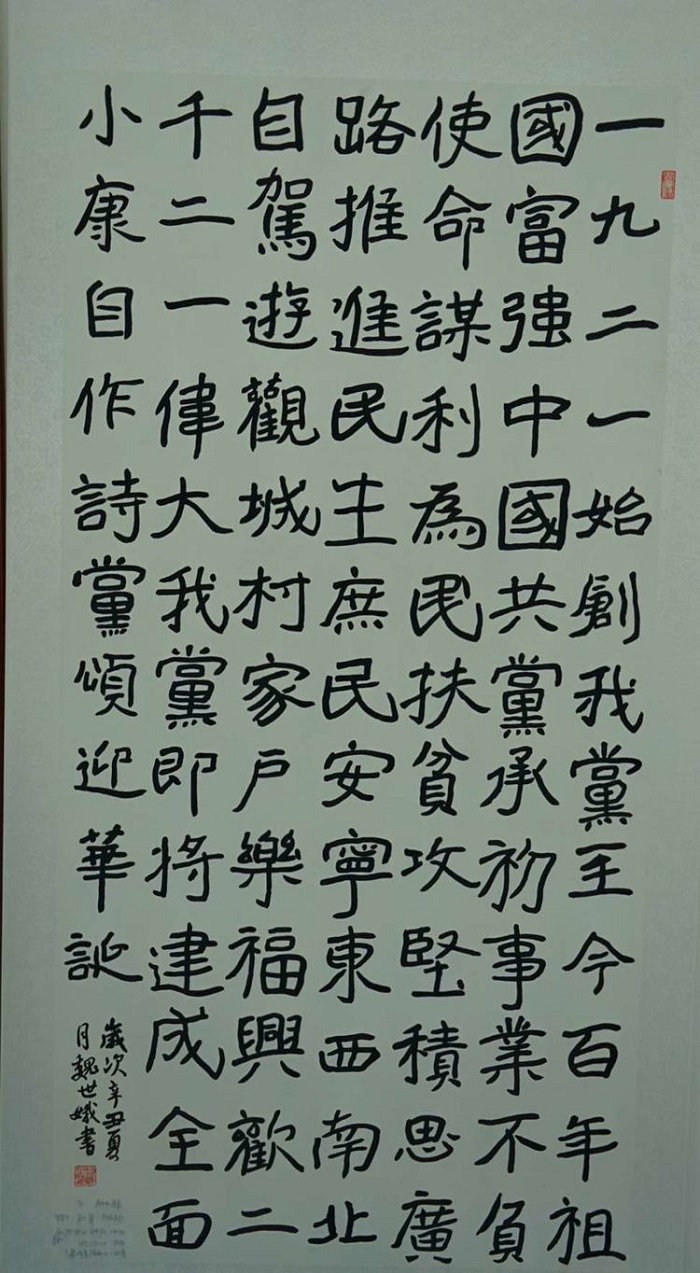 一九二一始創我黨至今百年祖
國富强中國共黨承初事業不負
使命謀利為民扶貧攻堅積思廣
路推進民生庶民安寧東西南北
自駕遊觀城村家戶樂福興歡二
千二一偉大我黨即將建成全面
小康自作詩黨頌迎華誕
歲次辛丑夏
月魏世娥書